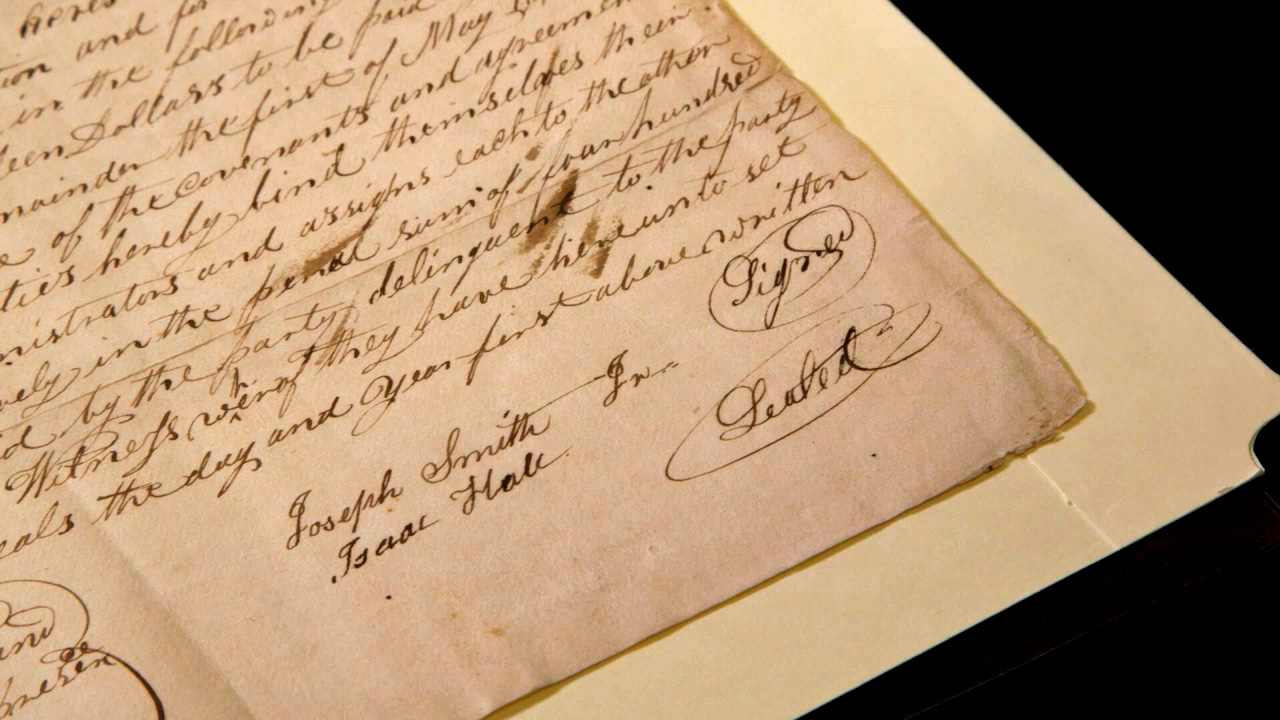 heres
tion and for
in the following
teen Dollars to be paid
mainder the first of May
e of the covenants and agreemen
ties hereby bind themselves their
nistrators and assigns each to the other
vely in the penal sum of four hundred
id by the party delinquent to the party
Witness wereof they have hereunto set
eals the day and year first above written
Signed
Sealed
Joseph Smith Jr
Isaac Hale
and